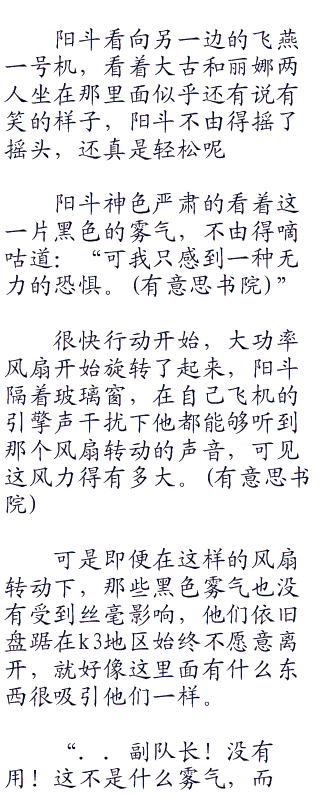 阳斗看向另一边的飞燕
一号机，看着大古和丽娜两
人坐在那里面似乎还有说有
笑的样子，阳斗不由得摇了
摇头，还真是轻松呢
阳斗神色严肃的看着这
一片黑色的雾气，不由得嘀
咕道：“可我只感到一种无
力的恐惧。(有意思书院)”
很快行动开始，大功率
风扇开始旋转了起来，阳斗
隔着玻璃窗，在自己飞机的
引擎声干扰下他都能够听到
那个风扇转动的声音，可见
这风力得有多大。(有意思书
院)
可是即便在这样的风扇
转动下，那些黑色雾气也没
有受到丝毫影响，他们依旧
盘踞在k3地区始终不愿意离
开，就好像这里面有什么东
西很吸引他们一样。
“．．副队长！没有
用！这不是什么雾气，而